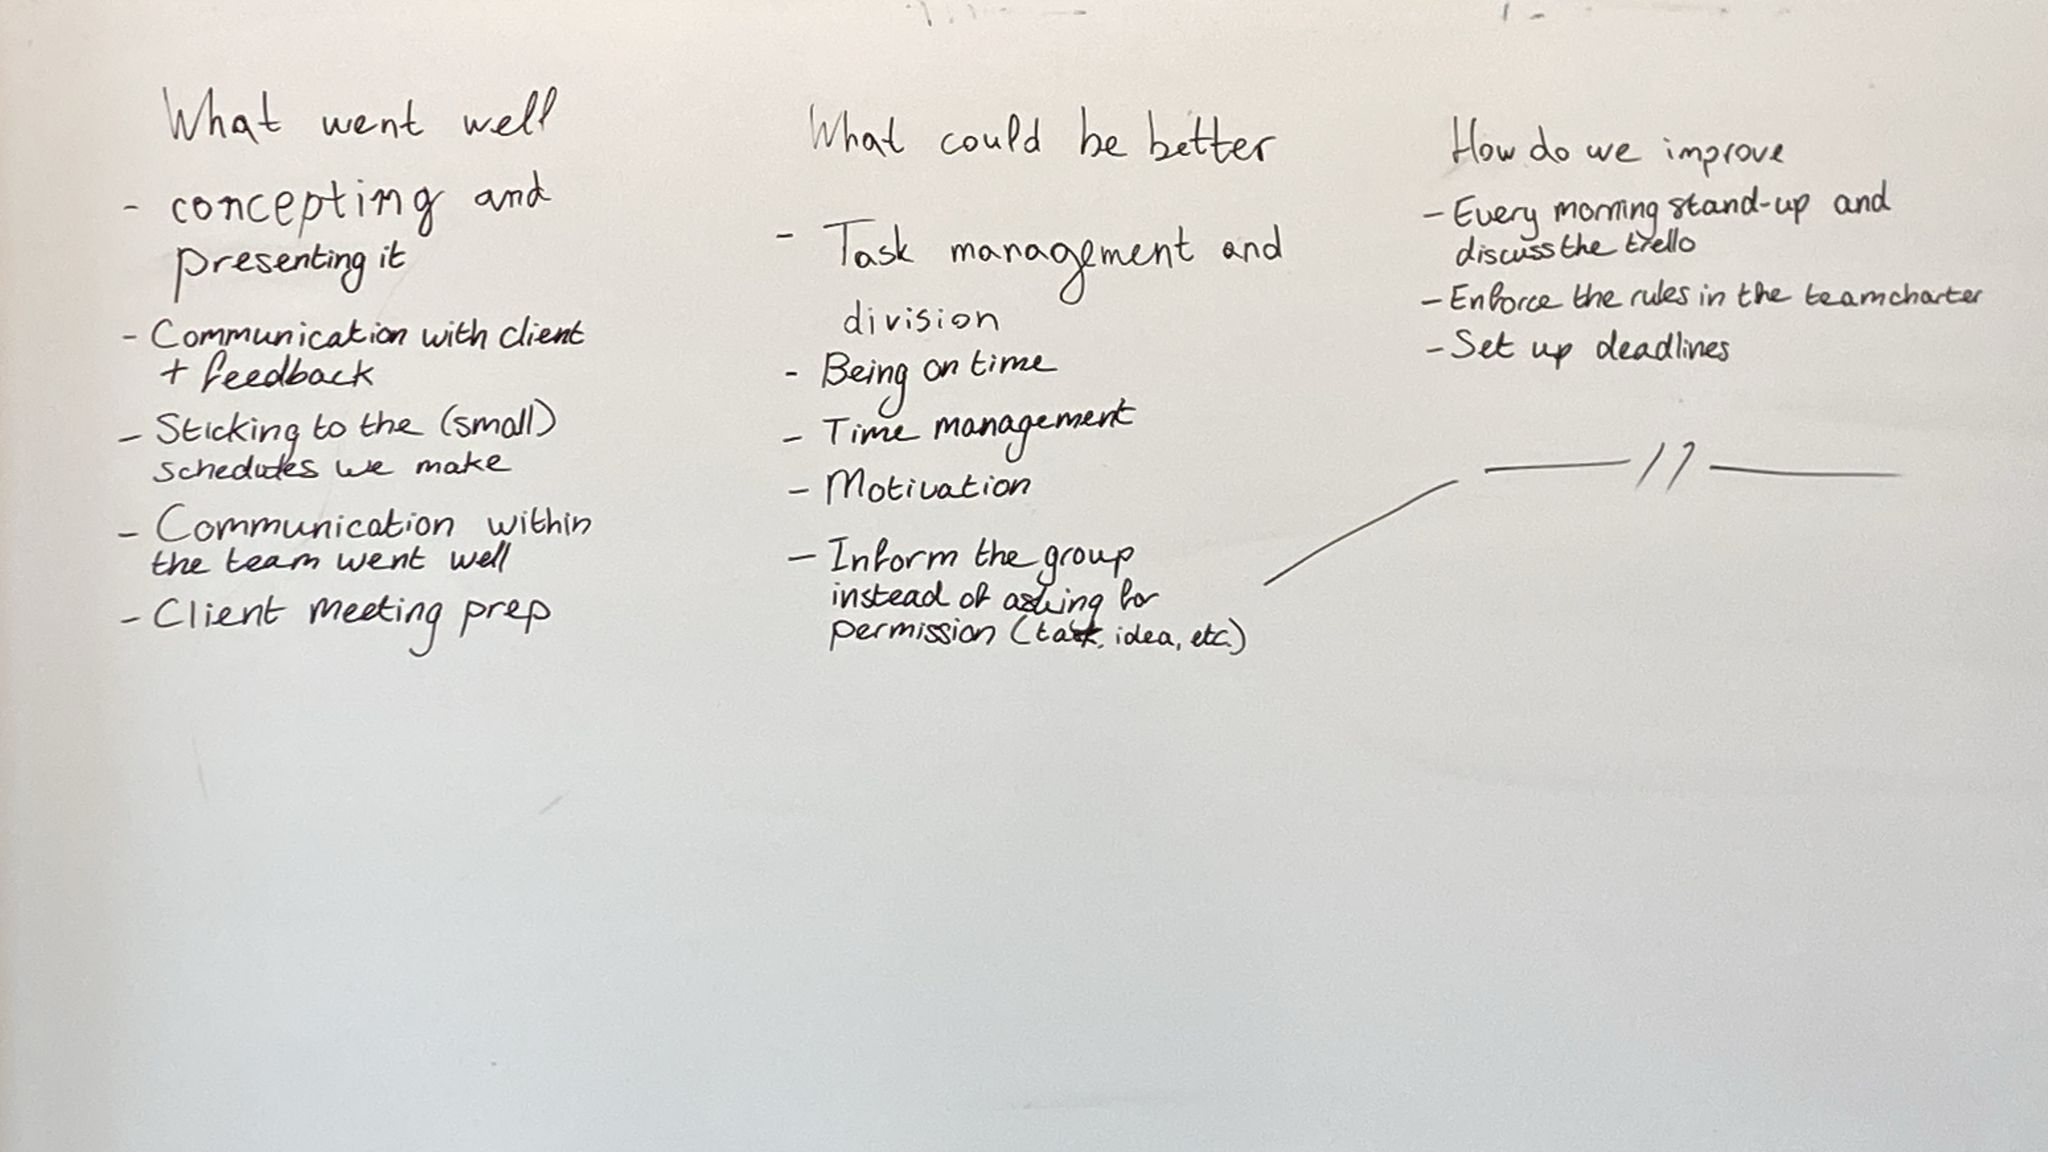 What went well
- concepting and
presenting it
- Communication with client
+ feedback
- Sticking to the (small)
schedules we make
- Communication within
the team went well
- Client meeting prep
What could be better
- Task management and
division
- Being on time
- Time management
- Motivation
- Inform the group
instead of asking for
permission (task, idea, etc.)
How do we improve
- Every morning stand-up and
discuss the trello
- Enforce the rules in the teamcharter
- Set up deadlines
— // —